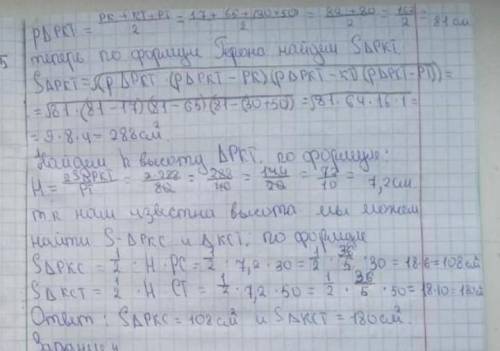 5
pΔPKT = PK + KT + PT / 2 = 17 + 65 + (30+50) / 2 = 82 + 80 / 2 = 162 / 2 = 81 см
теперь по формуле Герона найдем SΔPKT
SΔPKT = √(pΔPKT · (pΔPKT - PK)(pΔPKT - KT)(pΔPKT - PT)) =
= √81 · (81 - 17)(81 - 65)(81 - (30+50)) = √81 · 64 · 16 · 1 =
= 9 · 8 · 4 = 288 см²
Найдем h высоту ΔPKT. по формуле:
H = 2SΔPKT / PT = 2·288 / 80 = 288 / 40 = 144 / 20 = 72 / 10 = 7,2 см.
т.к нам известна высота мы можем
найти S-ΔPKC и ΔKCT. по формуле
SΔPKC = 1/2 · H · PC = 1/2 · 7,2 · 30 = 1/2 · 36/5 · 30 = 18·6 = 108 см²
SΔKCT = 1/2 · H · CT = 1/2 · 7,2 · 50 = 1/2 · 36/5 · 50 = 18·10 = 180 см²
Ответ: SΔPKC = 108 см² и SΔKCT = 180 см².